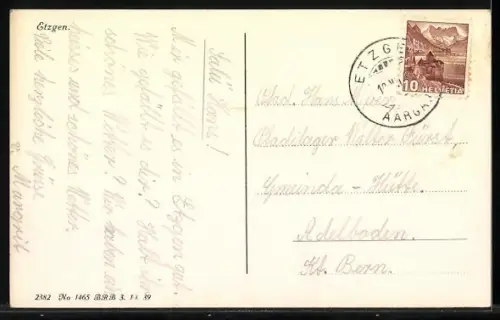 Etzgen.
Salü Hans!
Mir gefällt es in Etzgen gut.
Wie gefällt es dir? Habt ihr
schönes Wetter? Wir haben ein
heisses und schönes Wetter.
Viele herzliche Grüsse
v. Margrit
2382 No 1465 BRB 3. 10. 39
ETZG
AARGA
10 HELVETIA
Cad. Hans
Kadilager Walter Fürst,
Gmeinda-Hütte
Adelboden.
Kt. Bern.